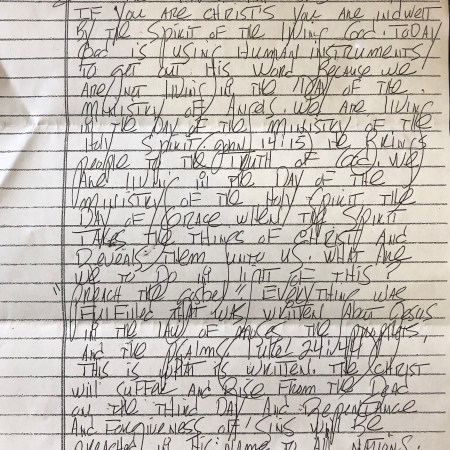 IF YOU ARE CHRIST'S YOU ARE INDWELT
BY THE SPIRIT OF THE LIVING GOD. TODAY
GOD IS USING HUMAN INSTRUMENTS
TO GET OUT HIS WORD BECAUSE WE
ARE NOT LIVING IN THE DAY OF THE
MINISTRY OF ANGELS. WE ARE LIVING
IN THE DAY OF THE MINISTRY OF THE
HOLY SPIRIT. JOHN 14:15) HE BRINGS
PEOPLE TO THE TRUTH OF GOD. WE
ARE LIVING IN THE DAY OF THE
MINISTRY OF THE HOLY SPIRIT. THE
DAY OF GRACE WHEN THE SPIRIT
TAKES THE THINGS OF CHRIST AND
REVEALS THEM UNTO US. WHAT ARE
WE TO DO IN LIGHT OF THIS?
"PREACH THE GOSPEL" EVERYTHING WAS
FULFILLED THAT WAS WRITTEN ABOUT JESUS
IN THE LAW OF MOSES THE PROPHETS,
AND THE PSALMS. LUKE 24:44
THIS IS WHAT IS WRITTEN. THE CHRIST
WILL SUFFER AND RISE FROM THE DEAD
ON THE THIRD DAY AND REPENTANCE
AND FORGIVENESS OF SINS WILL BE
PREACHED IN HIS NAME TO ALL NATIONS.